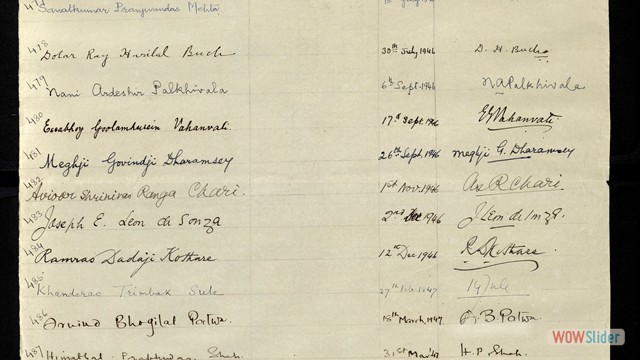 477 Sanatkumar Pranjivandas Mehta
478 Dolar Ray Harilal Buch 30th July, 1946 D. H. Buch
479 Nani Ardeshir Palkhivala 6th Sept. 1946 N A Palkhivala
480 Essabhoy Goolamhusein Vahanvati. 17th Sept. 1946 EGVahanvati
481 Meghji Govindji Dharamsey 26th Sept. 1946 Meghji G. Dharamsey
482 Shrinivas Ranga Chari. 1st Nov. 1946 R Chari
483 Joseph E. Leon de Souza 2nd Dec 1946 J Leon de Souza.
484 Ramrao Dadaji Kothare 12th Dec 1946 R D Kothare
485 Khanderao Trimbak Sule 27th Feb. 1947
486 Arvind Bhogilal Patwa. 18th March 1947 A. B. Patwa.
487 Shah 31st Mar '47 H. P. Shah
WOWSlider